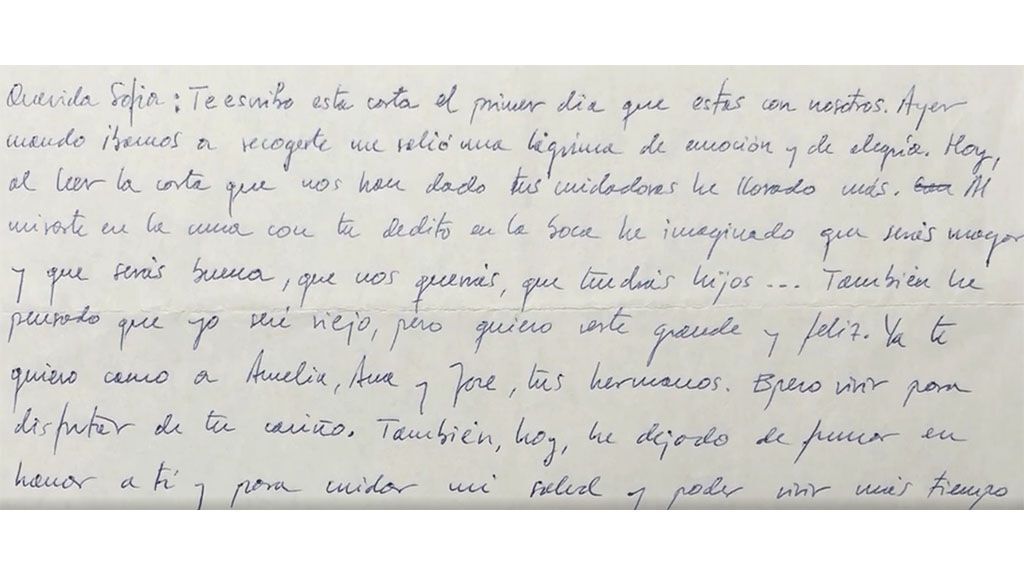 Querida Sofia: Te escribo esta carta el primer dia que estas con nosotros. Ayer
cuando ibamos a recogerte me salió una lágrima de emoción y de alegría. Hoy,
al leer la carta que nos han dado tus cuidadoras he llorado más. Al
mirarte en la cuna con tu dedito en la boca he imaginado que serás mayor
y que serás buena, que nos querrás, que tendrás hijos ... También he
pensado que yo seré viejo, pero quiero verte grande y feliz. Ya te
quiero como a Amelia, Ana y Jose, tus hermanos. Epero vivir para
disfrutar de tu cariño. También, hoy, he dejado de fumar en
honor a tí y para cuidar mi salud y poder vivir más tiempo